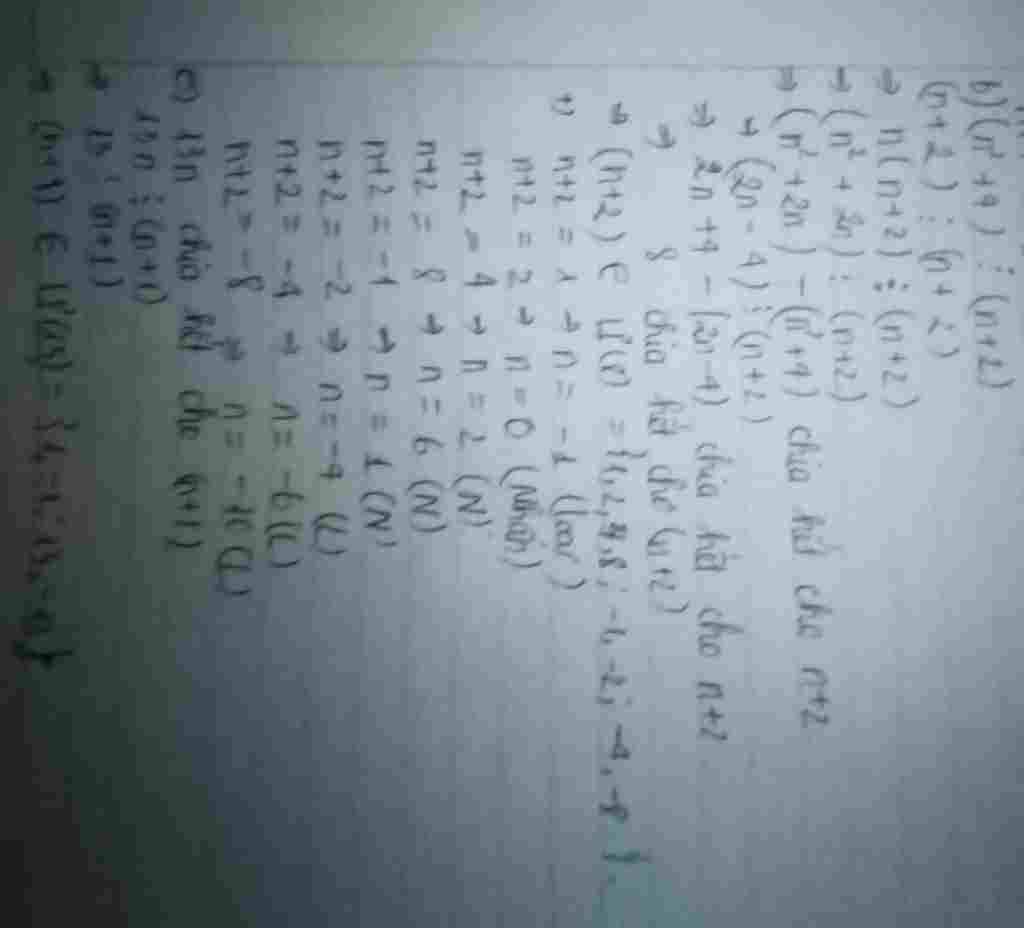 b) (n² + 4) ⋮ (n+2)
(n+2) ⋮ (n+2)
→ n(n+2) ⋮ (n+2)
→ (n² + 2n) ⋮ (n+2)
→ (n² + 2n) - (n² + 4) chia hết cho n+2
→ (2n - 4) ⋮ (n+2)
→ 2n + 4 - (2n - 4) chia hết cho n+2
→ 8 chia hết cho (n+2)
→ (n+2) ∈ Ư(8) = {1, 2, 4, 8; -1, -2; -4, -8}.
n+2 = 1 → n = -1 (loại)
n+2 = 2 → n = 0 (Nhận)
n+2 = 4 → n = 2 (N)
n+2 = 8 → n = 6 (N)
n+2 = -1 → n = 1 (N)
n+2 = -2 → n = -4 (L)
n+2 = -4 → n = -6 (L)
n+2 = -8 → n = -10 (L)
c) 13n chia hết cho (n+1)
13n ⋮ (n+1)
→ 13 ⋮ (n+1)
→ (n+1) ∈ Ư(13) = {1, -1; 13, -13}